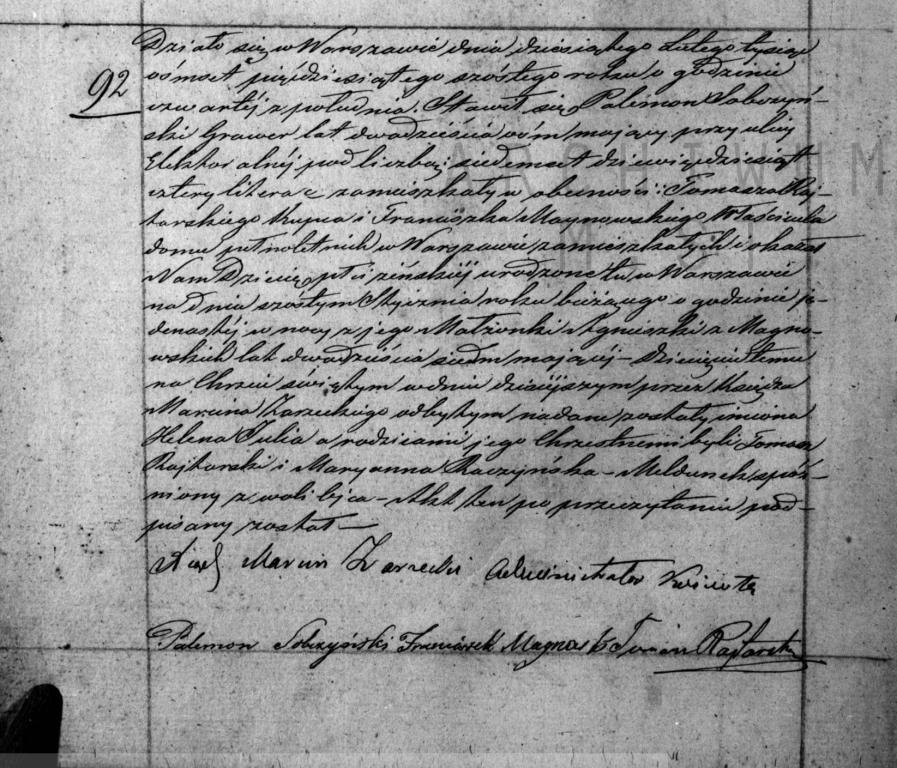 Działo się w Warszawie dnia dziesiątego Lutego tysiąc
92
ośmset pięćdziesiątego szóstego roku o godzinie
czwartej z południa. Stawił się Palemon Sobczyń-
ski Grawer lat dwadzieścia ośm mający przy ulicy
Elektoralnéj pod liczbą siedemset dziewięćdziesiąt
cztery litera c zamieszkały w obecności: Tomasza Raj-
tarskiego Kupca i Franciszka Magnowskiego Właściciela
domu pełnoletnich w Warszawie zamieszkałych i okazał
Nam Dziecię płci żeńskiéj urodzone tu w Warszawie
na dniu szóstym Stycznia roku bieżącego o godzinie je-
denastéj w nocy z jego Małżonki Agnieszki z Magno-
wskich lat dwadzieścia siedm mającéj – Dziecięciu temu
na Chrzcie świętym w dniu dzisiéjszym przez Księdza
Marcina Zarzeckiego odbytym nadane zostały imiona
Helena Julia a rodzicami jego Chrzestnemi byli Tomasz
Rajtarski i Maryanna Raczyńska – Meldunek spóź-
niony z woli Ojca – Akt ten po przeczytaniu pod-
pisany został –
Marcin Zarzecki Administrator Kościoła
Palemon Sobczyński Franciszek Magnowski Tomasz Rajtarski
ARCHIWUM